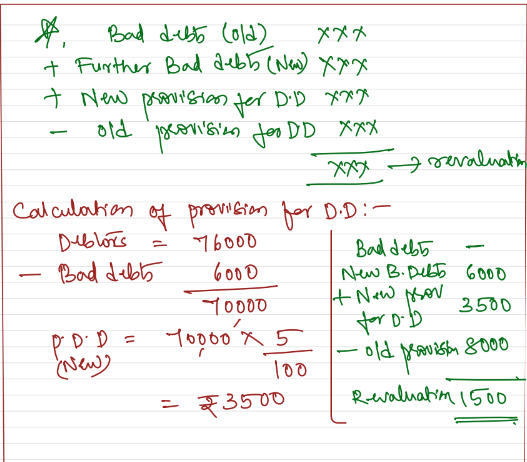 Bad debts (old) xxx
+ Further Bad debts (New) xxx
+ New provision for D.D xxx
- old provision for DD xxx
xxx → revaluation
Calculation of provision for D.D:-
Debtors = 76000
- Bad debts 6000
70000
P.D.D = 70000 x 5
(New) 100
= ₹3500
Bad debts -
New B. Debts 6000
+ New prov 3500
for D.D
- old provision 8000
Revaluation 1500